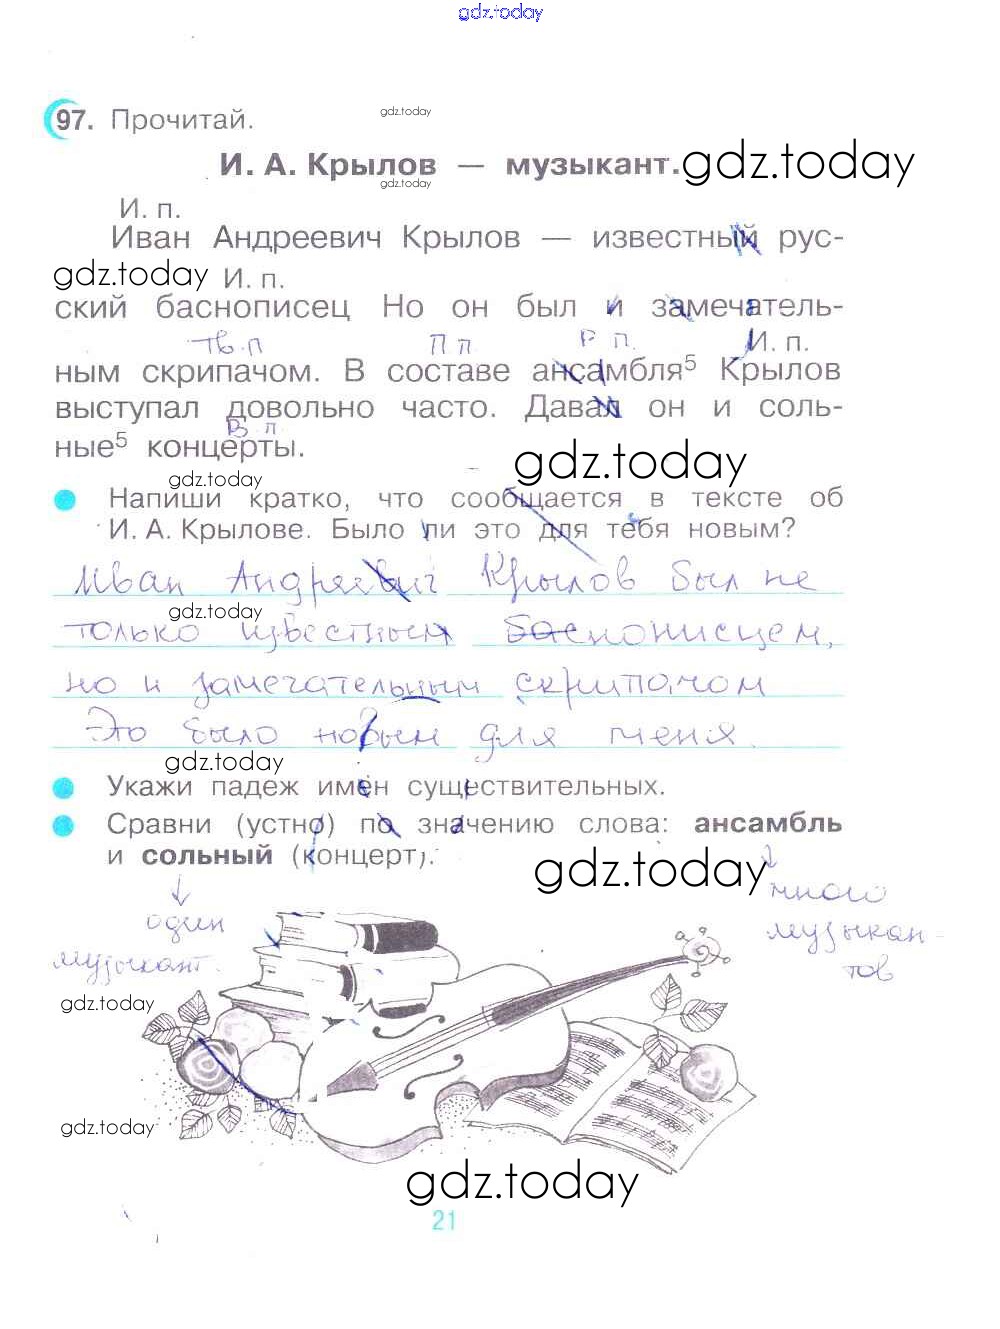 gdz.today
97. Прочитай.
gdz.today
И. А. Крылов — музыкант.
gdz.today
gdz.today
И. п.
Иван Андреевич Крылов — известный рус-
gdz.today
И. п.
ский баснописец Но он был и замечатель-
Тв.п П п. Р п. И. п.
ным скрипачом. В составе ансамбля5 Крылов
выступал довольно часто. Давал он и соль-
В. п.
ные5 концерты.
gdz.today
gdz.today
Напиши кратко, что сообщается в тексте об
И. А. Крылове. Было ли это для тебя новым?
Иван Андреевич Крылов был не
gdz.today
только известным баснописцем,
но и замечательным скрипачом
Это было новым для меня.
gdz.today
Укажи падеж имён существительных.
Сравни (устно) по значению слова: ансамбль
и сольный (концерт).
gdz.today
один
музыкант.
много
музыкан-
тов
gdz.today
gdz.today
gdz.today
21